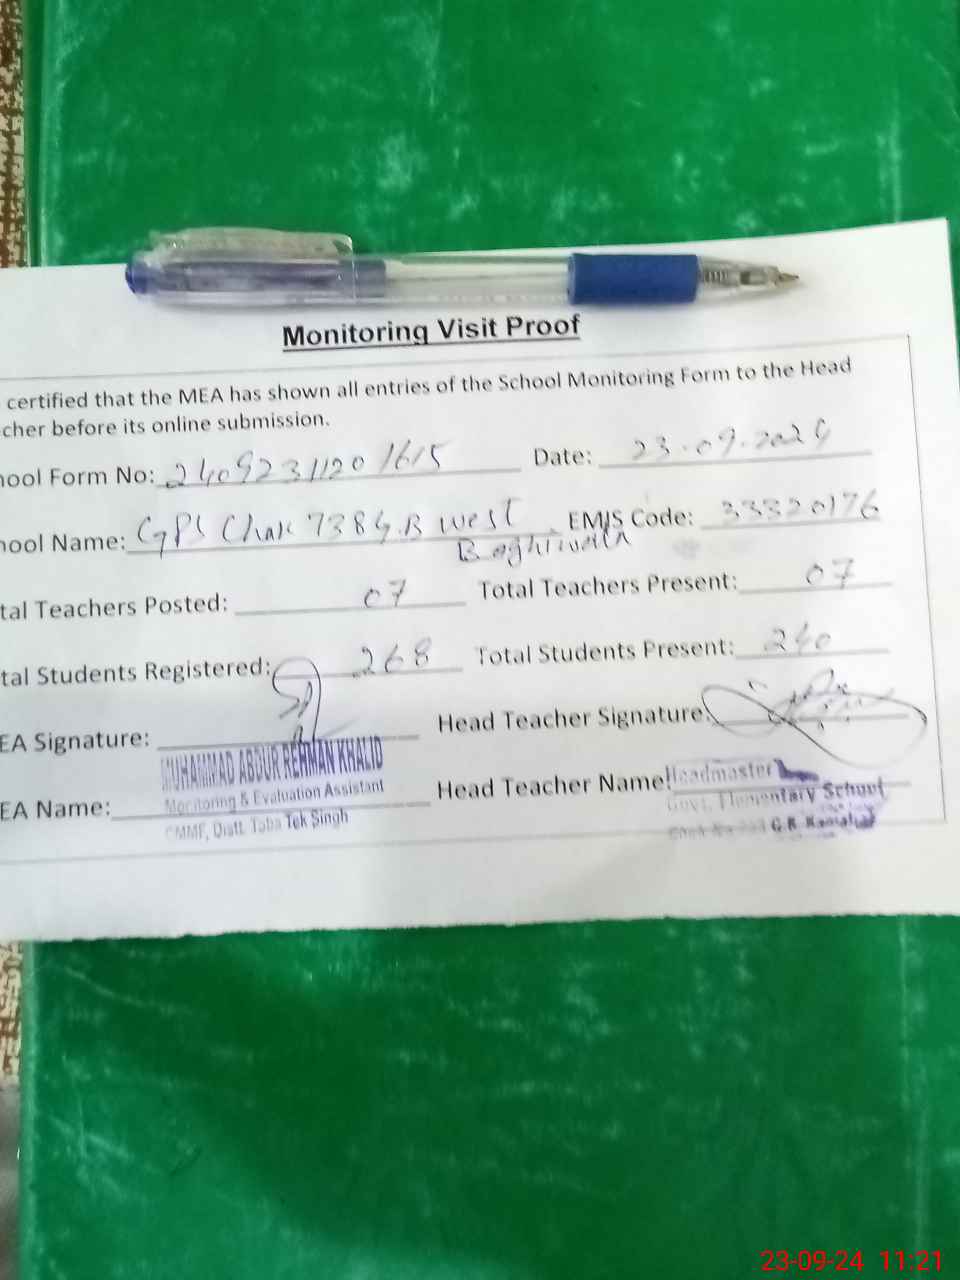 Monitoring Visit Proof
certified that the MEA has shown all entries of the School Monitoring Form to the Head
cher before its online submission.
hool Form No: 24092311201615 Date: 23.09.2024
hool Name: GPS Chak 738 G.B West EMIS Code: 33320176
tal Teachers Posted: 07 Total Teachers Present: 07
tal Students Registered: 268 Total Students Present: 240
EA Signature: Head Teacher Signature:
EA Name: MUHAMMAD ABDUR REHMAN KHALID
Monitoring & Evaluation Assistant
CMMF, Distt. Toba Tek Singh
Head Teacher Name: Headmaster
Govt. Elementary School
G.B. Kamalia
23-09-24 11:21